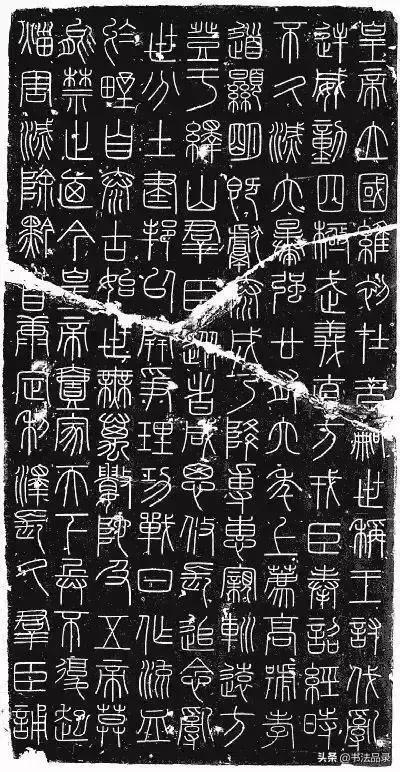 皇帝立國維初在昔嗣世稱王討伐亂
逆威動四極武義直方戎臣奉詔經時
不久滅六暴強廿有六年上薦高號孝
道顯明既獻泰成乃降尃惠親巡遠方
登于繹山羣臣從者咸思攸長追念亂
世分土建邦以開爭理功戰日作流血
於野自泰古始世無萬數阤及五帝莫
能禁止廼今皇帝壹家天下兵不復起
災害滅除黔首康定利澤長久羣臣誦
头条 @书法品录